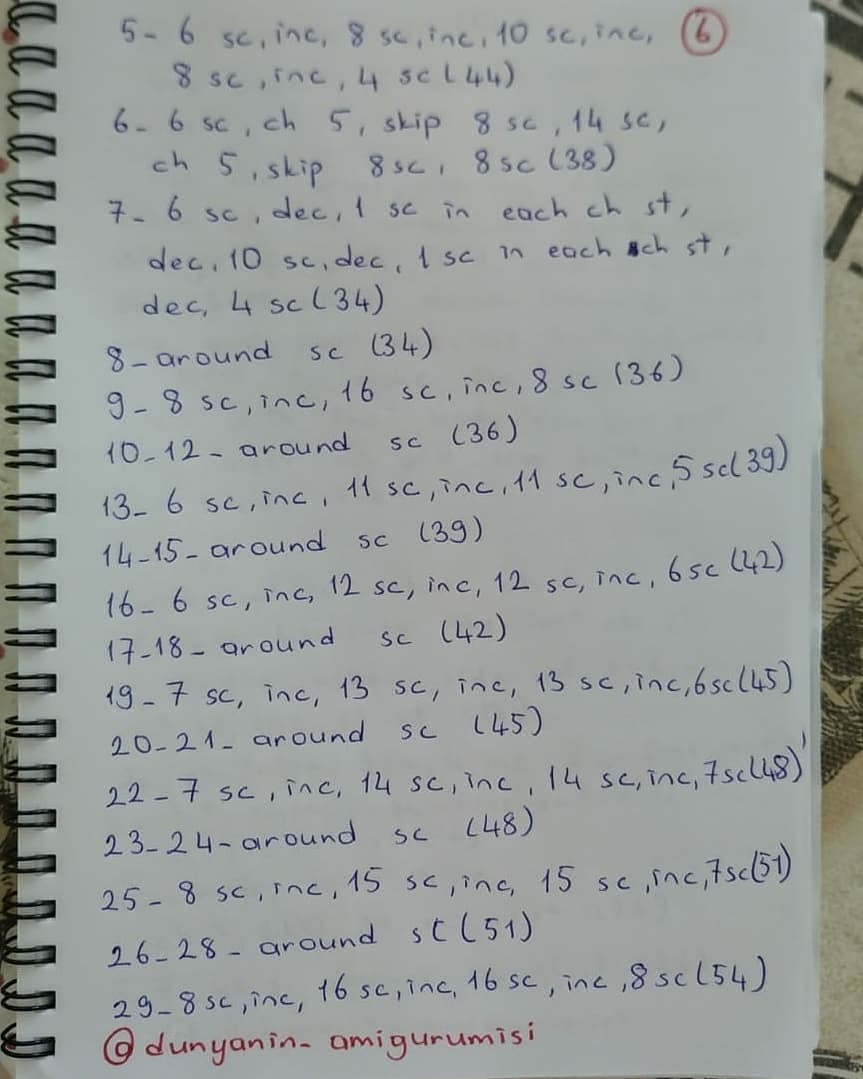 5- 6 sc, inc, 8 sc, inc, 10 sc, inc, 6
8 sc, inc, 4 sc (44)
6- 6 sc, ch 5, skip 8 sc, 14 sc,
ch 5, skip 8 sc, 8 sc (38)
7- 6 sc, dec, 1 sc in each ch st,
dec, 10 sc, dec, 1 sc in each ch st,
dec, 4 sc (34)
8- around sc (34)
9- 8 sc, inc, 16 sc, inc, 8 sc (36)
10-12- around sc (36)
13- 6 sc, inc, 11 sc, inc, 11 sc, inc, 5 sc (39)
14-15- around sc (39)
16- 6 sc, inc, 12 sc, inc, 12 sc, inc, 6 sc (42)
17-18- around sc (42)
19- 7 sc, inc, 13 sc, inc, 13 sc, inc, 6 sc (45)
20-21- around sc (45)
22- 7 sc, inc, 14 sc, inc, 14 sc, inc, 7 sc (48)
23-24- around sc (48)
25- 8 sc, inc, 15 sc, inc, 15 sc, inc, 7 sc (51)
26-28- around sc (51)
29- 8 sc, inc, 16 sc, inc, 16 sc, inc, 8 sc (54)
@dunyanin- amigurumisi